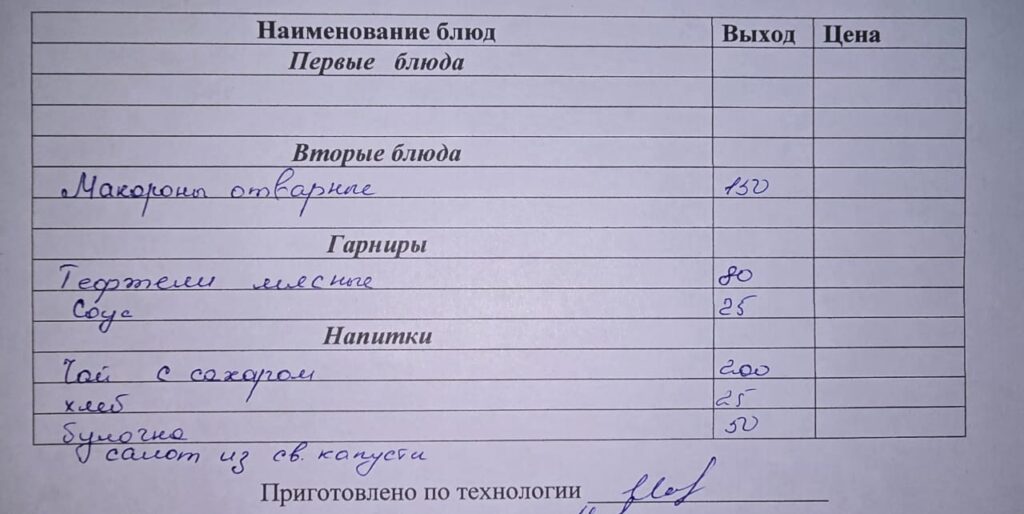 Наименование блюд Выход Цена
Первые блюда
Вторые блюда
Макороны отварные 150
Гарниры
Тефтели мясные 80
Соус 25
Напитки
Чай с сахаром 200
хлеб 25
булочка 50
салот из св. капусти
Приготовлено по технологии